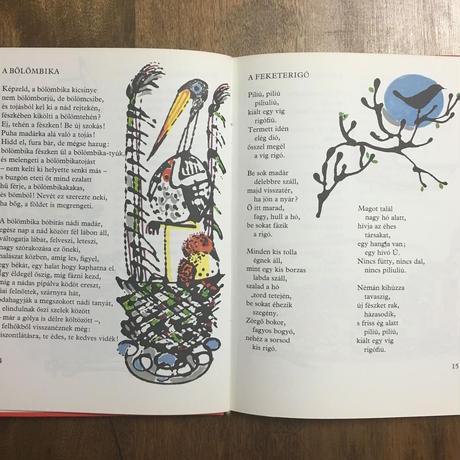 A BÖLÖMBIKA
Képzeld, a bölömbika kicsinye
nem bölömborjú, de bölömcsibe,
és tojásból kel ki a nád rejtekén,
fészkében kikölti a bölömtehén?
Ej, tehén a fészken! Be új szokás!
Puha madárka alá való a tojás.
Hidd el, fura bár, de mégse hazug:
bölömbika fészkén ül a bölömbika-tyúk,
és melengeti a bölömbikatojást
– nem kelti ki helyette senki más –
hű férje, a bölömbikakakas,
és bömböl! Nevét ez szerezte neki,
ha bőg, a földet is megrengeti.
A bölömbika bóbitás nádi madár,
egész nap a nád közt fél lábon áll,
váltogatja lábát, felveszi, leteszi,
nagy szórakozása ez az öneki,
halászat közben, amíg les, figyel,
egy békát, egy halat hogy kaphatna el.
Így éldegél őszig, míg zizzen a nád,
míg a nádas pipálva ködöt ereszt,
fiai felnőttek, szárnyra hát,
odahagyják a megszokott nádi tanyát,
elindulnak őszi szelek között
– már a gólya is délre költözött –,
felhőkből visszanéznek még:
viszontlátásra, te édes, te kedves vidék!
A FEKETERIGÓ
Píliú, píliú
píliuliú,
kiált egy víg
rigófiú.
Termett idén
elég dió,
ősszel megél
a víg rigó.
Be sok madár
délebbre száll,
majd visszatér,
ha jön a nyár?
Ő itt marad,
fagy, hull a hó,
be sokat fázik
a rigó.
Minden kis tolla
égnek áll,
mint egy kis borzas
labda száll,
szalad a hó
tetején,
be sokat éhezik
szegény.
Zörgő bokor,
fagyos bogyó,
nehéz a sorsod
kis rigó.
Magot talál
nagy hó alatt,
hívja az éhes
társakat,
egy hangja van;
egy hívó Ú.
Nincs fütty, nincs dal,
nincs píliuliú.
Némán kihúzza
tavaszig,
új fészket rak,
házasodik,
s friss ég alatt
píliú, píliú,
kiált egy víg
rigófiú.
15